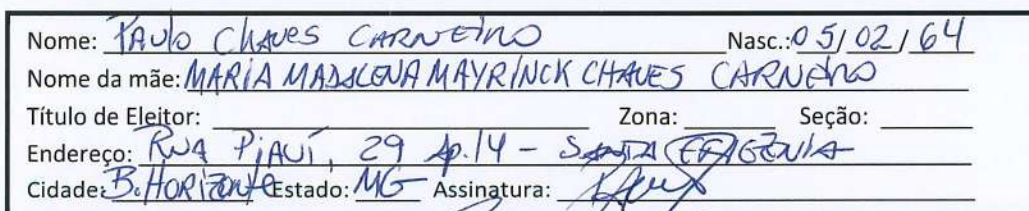 Nome: PAULO CHAVES CARNEIRO Nasc.: 05/02/64
Nome da mãe: MARIA MADALENA MAYRINCK CHAVES CARNEIRO
Título de Eleitor: Zona: Seção:
Endereço: RUA PIAUÍ, 29 Ap.14 - SANTA EFIGENIA
Cidade: B. HORIZONTE Estado: MG Assinatura: